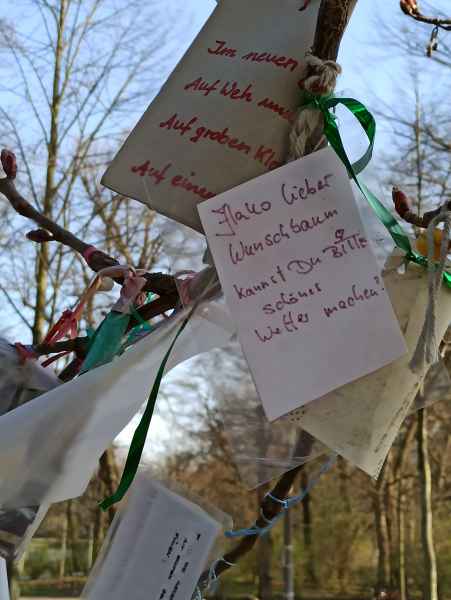 Im neuen
Auf Weh und
Auf groben Kl
Auf einen
Hallo lieber
Wunschbaum
kannst Du BITTE
schönes
Wetter machen?